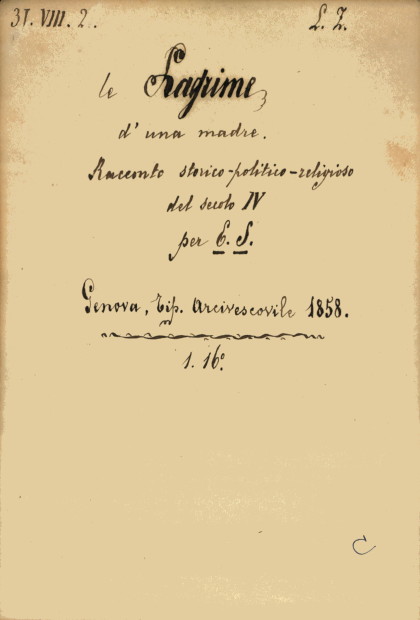 31. VIII. 2.. L. Z.
le Lagrime
d'una madre.
Racconto storico-politico-religioso
del secolo IV
per E. S.
Genova, Tip. Arcivescovile 1858.
1. 16°
C